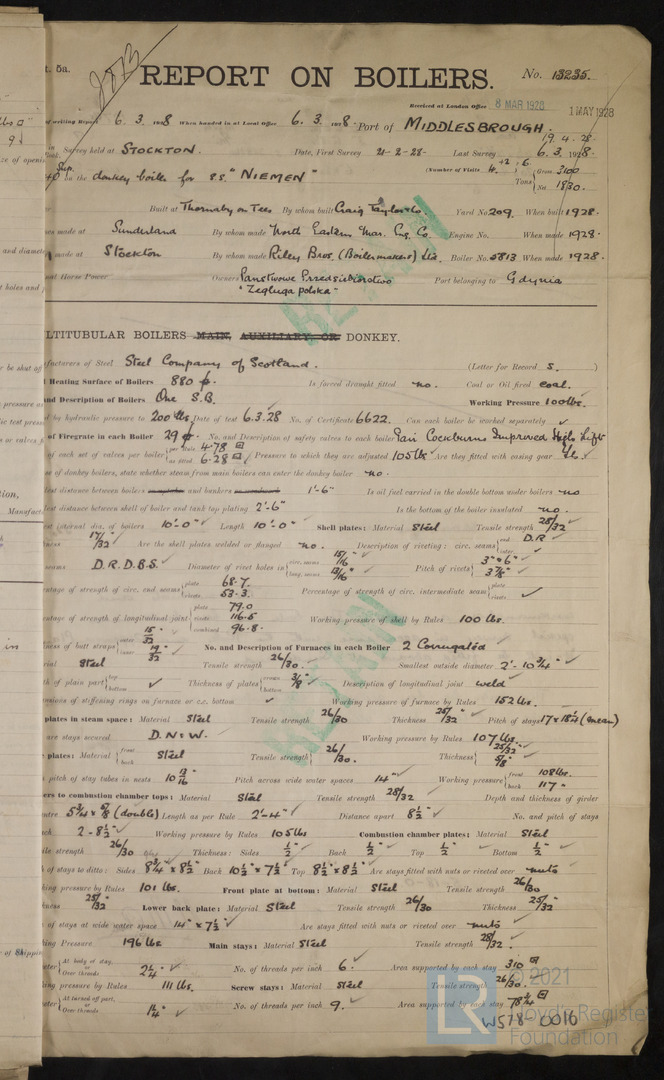 t. 5a.
REPORT ON BOILERS.
No. 13235.
Received at London Office 8 MAR 1928
1 MAY 1928
of writing Report 6. 3. 1928 When handed in at Local Office 6. 3. 1928. Port of MIDDLESBROUGH.
19.4.28
in Survey held at STOCKTON. Date, First Survey 21-2-28- Last Survey 6.3.1928.
on the donkey boiler for S.S. "NIEMEN" (Number of Visits 4. +2 : 6. Tons Gross 3100 Net 1830.
Built at Thornaby on Tees By whom built Craig Taylor & Co. Yard No. 209. When built 1928.
es made at Sunderland By whom made North Eastern Mar. Eng. Co. Engine No. When made 1928.
made at Stockton By whom made Riley Bros. (Boilermakers) Ltd. Boiler No. 5813 When made 1928.
al Horse Power Owners Panstwowe Przedsiebiorstwo Port belonging to Gdynia
"Zegluga polska"
LTITUBULAR BOILERS MAIN, AUXILIARY OR DONKEY.
facturers of Steel Steel Company of Scotland. (Letter for Record S. )
l Heating Surface of Boilers 880 Is forced draught fitted no. Coal or Oil fired coal.
nd Description of Boilers One S.B. Working Pressure 100 lbs.
d by hydraulic pressure to 200 lbs Date of test 6.3.28 No. of Certificate 6622. Can each boiler be worked separately ✓
of Firegrate in each Boiler 29 No. and Description of safety valves to each boiler Pair Cockburns Improved High Lift
of each set of valves per boiler per Rule 4.78 as fitted 6.28 Pressure to which they are adjusted 105 lbs Are they fitted with easing gear Yes.
se of donkey boilers, state whether steam from main boilers can enter the donkey boiler no.
lest distance between boilers and bunkers 1'-6" Is oil fuel carried in the double bottom under boilers no
lest distance between shell of boiler and tank top plating 2'-6" Is the bottom of the boiler insulated no.
est internal dia. of boilers 10'-0" Length 10'-0" Shell plates: Material Steel Tensile strength 28/32
ness 17/32 Are the shell plates welded or flanged no. Description of riveting: circ. seams end D.R inter.
seams D.R.D.B.S. Diameter of rivet holes in circ. seams 15/16 long. seams 13/16 Pitch of rivets 3"+6" 3 7/8"
entage of strength of circ. end seams plate 68.7 rivets 53.3. Percentage of strength of circ. intermediate seam plate rivets ✓
entage of strength of longitudinal joint plate 79.0 rivets 116.5 combined 96.8. Working pressure of shell by Rules 100 lbs.
ness of butt straps outer 15/32 inner 19/32 No. and Description of Furnaces in each Boiler 2 Corrugated
ial Steel Tensile strength 26/30. Smallest outside diameter 2'-10 3/4"
th of plain part top bottom ✓ Thickness of plates crown bottom 3/8 Description of longitudinal joint weld
nsions of stiffening rings on furnace or c.c. bottom ✓ Working pressure of furnace by Rules 152 lbs.
plates in steam space: Material Steel Tensile strength 26/30 Thickness 25/32 Pitch of stays 17 x 18 1/4 (mean)
are stays secured D.N & W. Working pressure by Rules 107 lbs.
plates: Material front back Steel Tensile strength 26/30. Thickness 25/32 5/8
pitch of stay tubes in nests 10 13/16 Pitch across wide water spaces 14" Working pressure front 108 lbs. back 117"
ers to combustion chamber tops: Material Steel Tensile strength 28/32 Depth and thickness of girder
ntre 5 3/4 x 5/8 (double) Length as per Rule 2'-4" Distance apart 8 1/2" No. and pitch of stays
ch. 2-8 1/2" Working pressure by Rules 105 lbs Combustion chamber plates: Material Steel
ile strength 26/30 Thickness: Sides 1/2 Back 1/2 Top 1/2 Bottom 1/2
h of stays to ditto: Sides 8 3/4 x 8 1/2 Back 10 1/2 x 7 1/2 Top 8 1/2 x 8 1/2 Are stays fitted with nuts or riveted over nuts
ing pressure by Rules 101 lbs. Front plate at bottom: Material Steel Tensile strength 26/30
ness 25/32 Lower back plate: Material Steel Tensile strength 26/30 Thickness 25/32
of stays at wide water space 14" x 7 1/2" Are stays fitted with nuts or riveted over nuts
ing Pressure 196 lbs Main stays: Material Steel Tensile strength 28/32.
eter At body of stay, or Over threads 2 1/4" No. of threads per inch 6. Area supported by each stay 310
ing pressure by Rules 111 lbs. Screw stays: Material Steel Tensile strength 26/30.
eter At turned off part, or Over threads 1 1/4" No. of threads per inch 9. Area supported by each stay 78 3/4
© 2021
Lloyd's Register
Foundation
LR
W578-0016